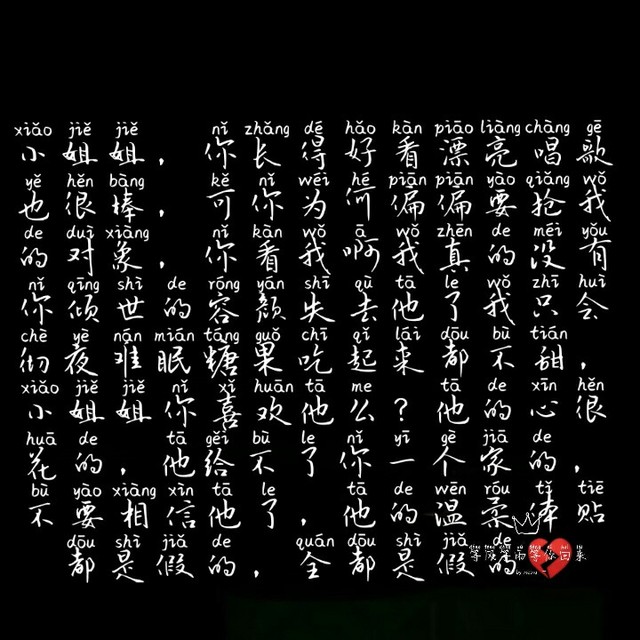 xiǎo jiě jiě nǐ zhǎng dé hǎo kàn piāo liàng chàng gē
小姐姐，你长得好看漂亮唱歌
yě hěn bàng kě nǐ wéi hé piān piān yào qiǎng wǒ
也很棒，可你为何偏偏要抢我
de duì xiàng nǐ kàn wǒ ā wǒ zhēn de méi yǒu
的对象，你看我啊我真的没有
nǐ qīng shì de róng yán shī qù tā le wǒ zhǐ huì
你倾世的容颜失去他了我只会
chè yè nán mián táng guǒ chī qǐ lái dōu bù tián
彻夜难眠糖果吃起来都不甜，
xiǎo jiě jiě nǐ xǐ huān tā me tā de xīn hěn
小姐姐你喜欢他么？他的心很
huā de tā gěi bù le nǐ yī gè jiā de
花的，他给不了你一个家的，
bù yào xiàng xìn tā le tā de wēn róu tǐ tiē
不要相信他了，他的温柔体贴
dōu shì jiǎ de quán dōu shì jiǎ de
都是假的，全都是假的